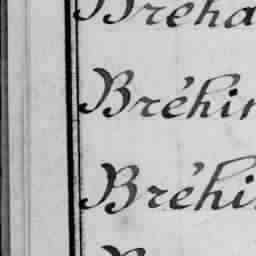 Bréha
Bréhin
Bréhi